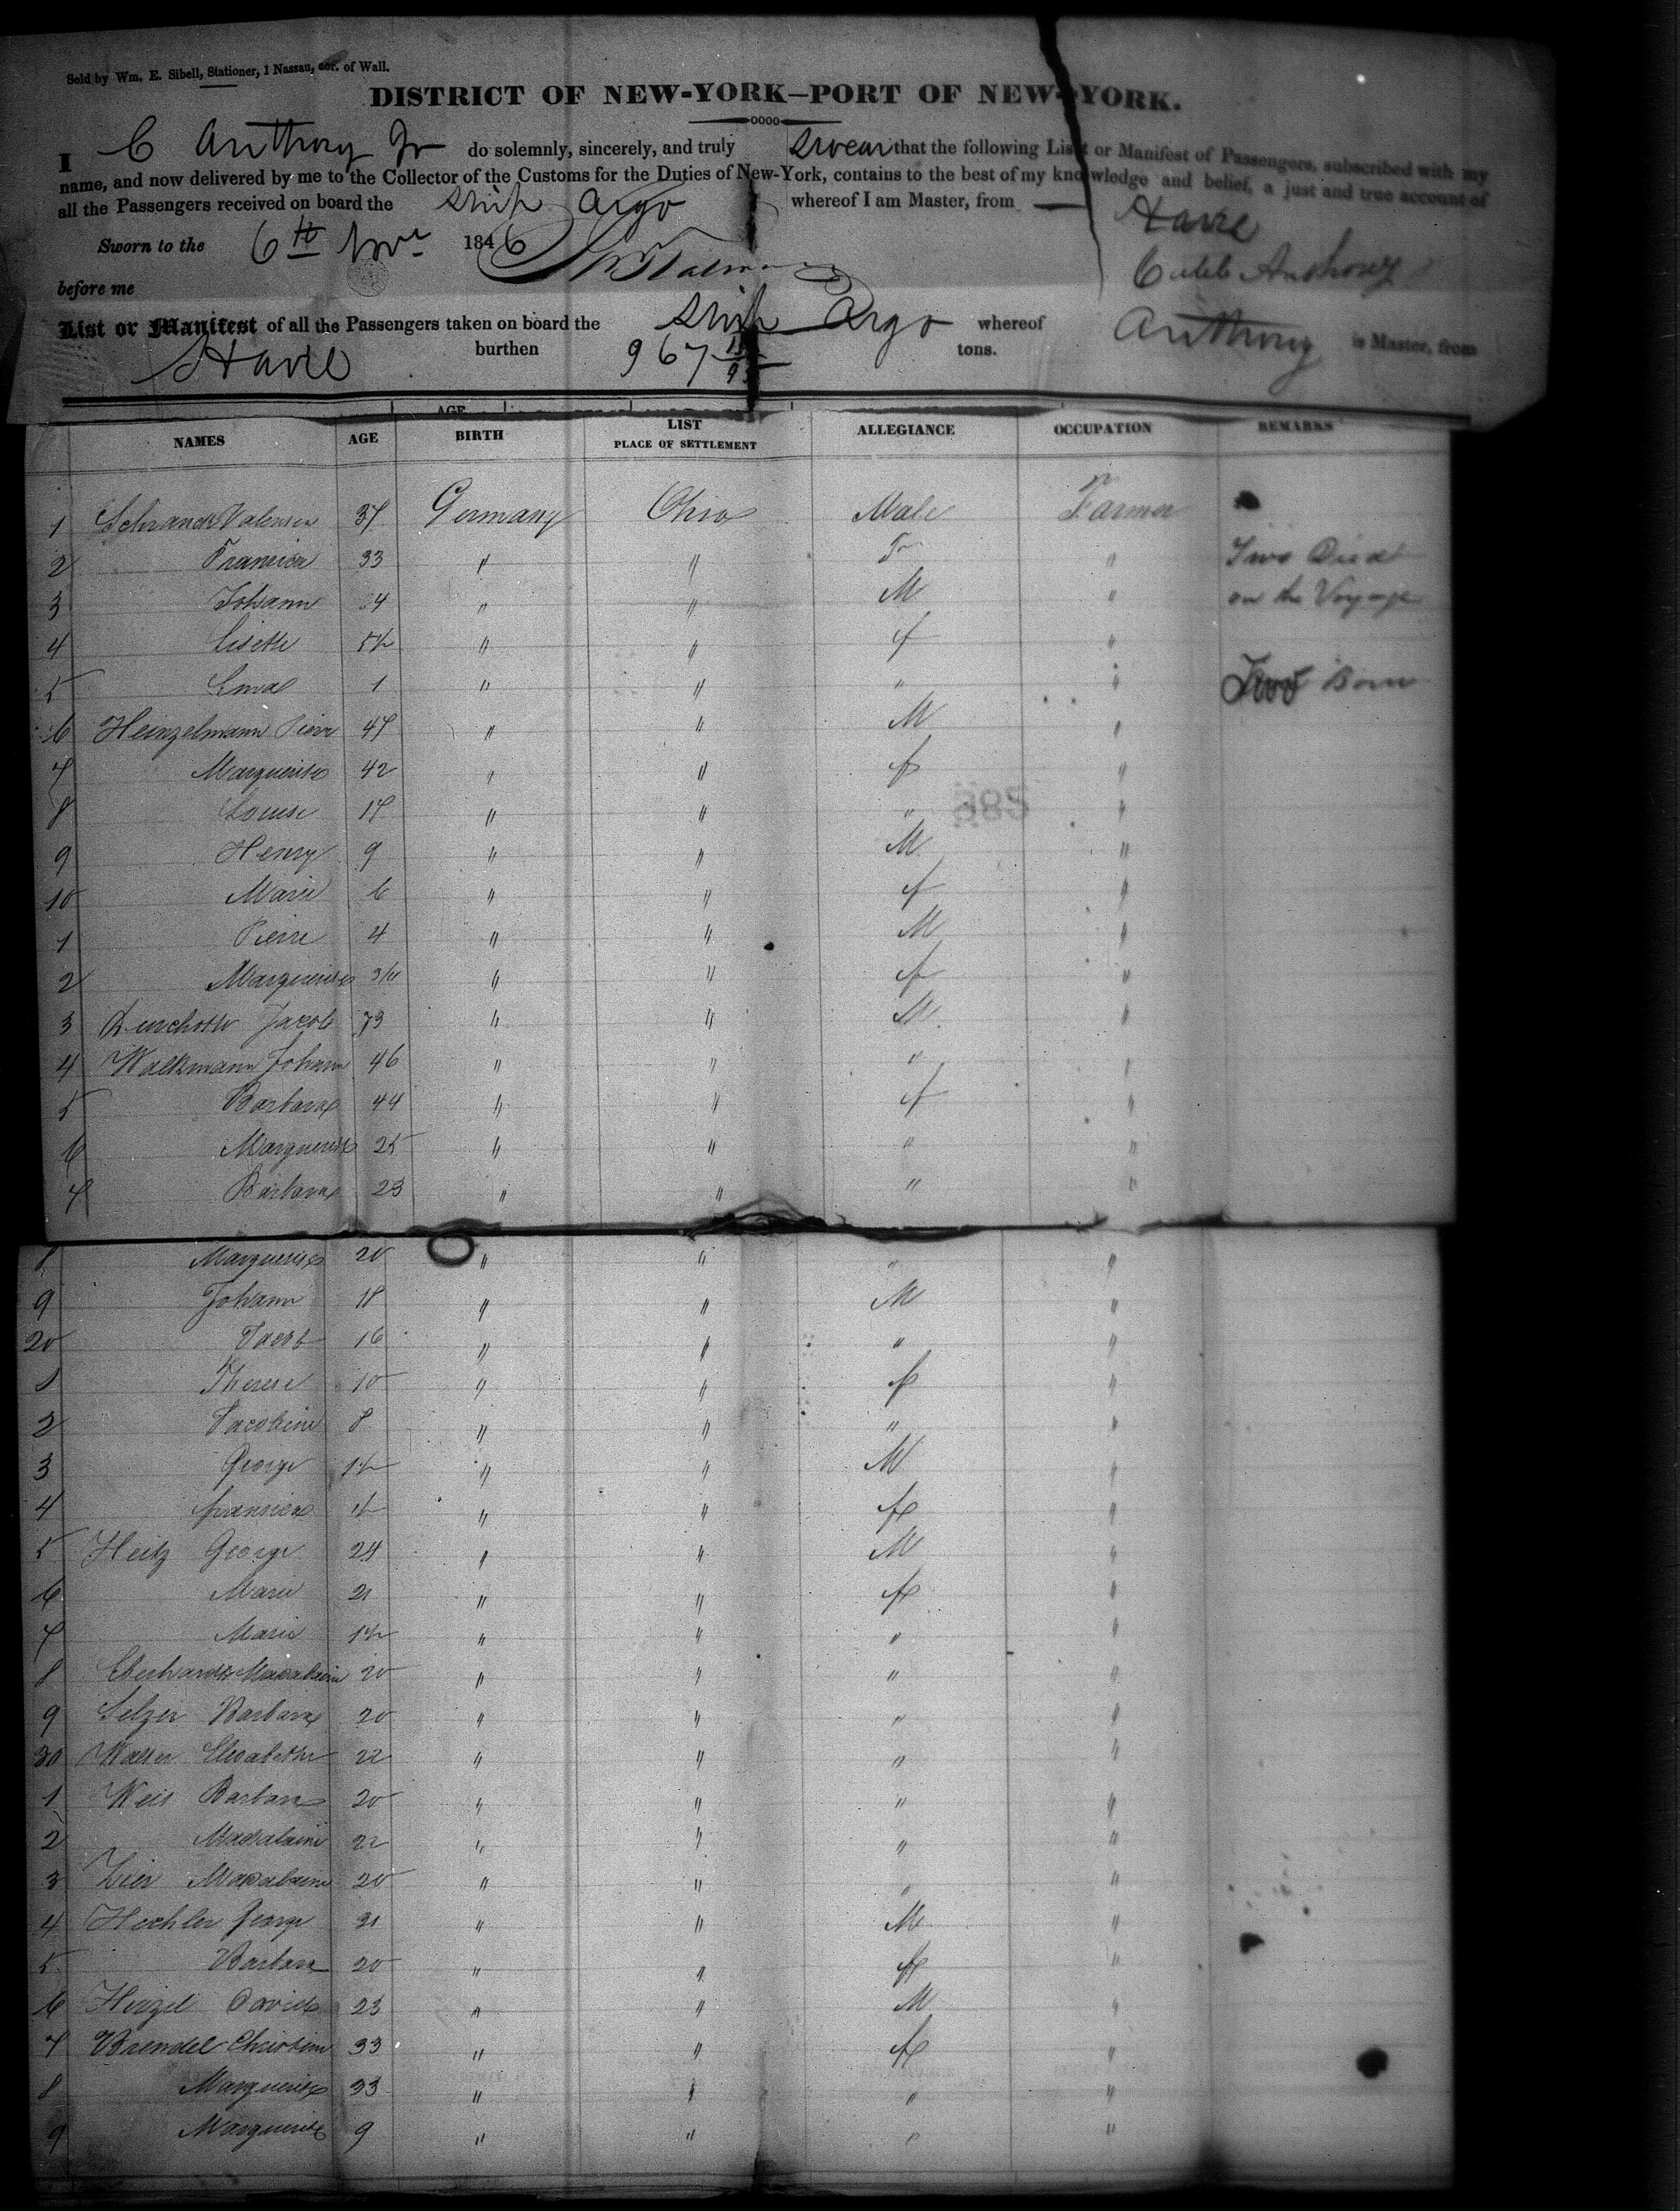 Sold by Wm. E. Sibell, Stationer, 1 Nassau, cor. of Wall.
DISTRICT OF NEW-YORK—PORT OF NEW-YORK.
I C Anthony Jr do solemnly, sincerely, and truly swear that the following List or Manifest of Passengers, subscribed with my
name, and now delivered by me to the Collector of the Customs for the Duties of New-York, contains to the best of my knowledge and belief, a just and true account of
all the Passengers received on board the Ship Argo whereof I am Master, from Havre
Sworn to the 6th Nov 1846
Caleb Anthony
before me
List or Manifest of all the Passengers taken on board the Ship Argo whereof Anthony is Master, from
Havre burthen 967 tons.
AGE
NAMES AGE BIRTH LIST PLACE OF SETTLEMENT ALLEGIANCE OCCUPATION REMARKS
1 37 Germany Ohio Male Farmer
2 33 " " F " Two Died
3 Johann " " M " on the Voyage
4 Lisette " " f "
5 1 " " " " Two Born
6 Heinzelmann 47 " " M "
7 Marguerite 42 " " f "
8 Louise 17 " " " "
9 Henry 9 " " M "
10 Marie 6 " " f "
1 Pierre 4 " " M "
2 Marguerite " " f "
3 Jacob 73 " " M "
4 Walkmann Johann 46 " " " "
5 Barbara 44 " " f "
6 Marguerite 25 " " " "
7 Barbara 23 " " " "
8 Marguerite 20 " " " "
9 Johann 18 " " M "
20 Jacob 16 " " " "
1 Therese 10 " " f "
2 Jacobine 8 " " " "
3 George " " M "
4 " " f "
5 Heitz George 24 " " M "
6 Marie 21 " " f "
7 Marie " " " "
8 Eberhardt Madalaine 20 " " " "
9 Selzer Barbara 20 " " " "
30 Walter Elisabethe 22 " " " "
1 Weis Barbara 20 " " " "
2 Madalaine 22 " " " "
3 Zier Madalaine 20 " " " "
4 Hechler George 31 " " M "
5 Barbara 20 " " f "
6 Hirzel David 23 " " M "
7 Brendel Christine 33 " " f "
8 Marguerite 33 " " " "
9 Marguerite 9 " " " "